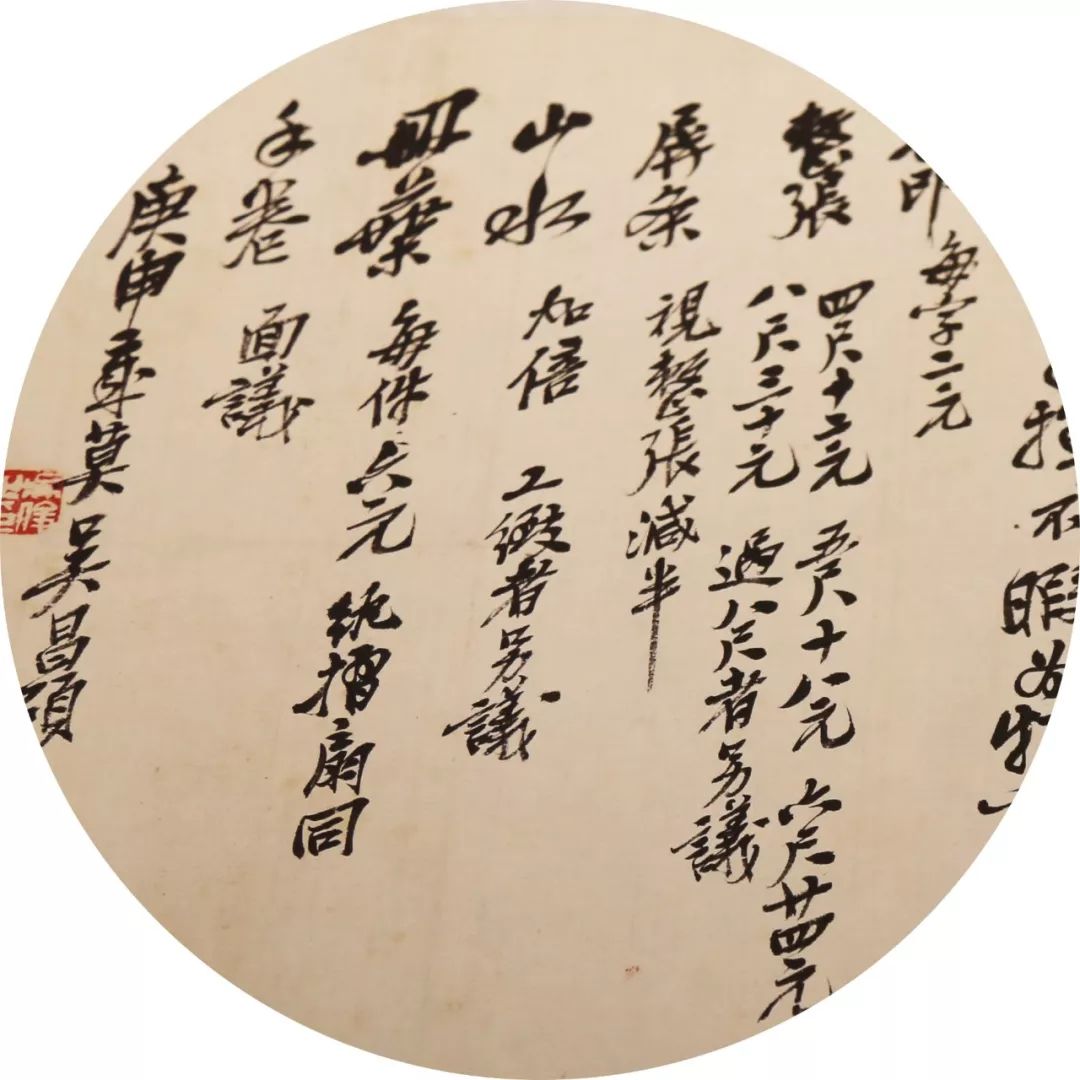 不暇
印 每字二元
整張 四尺十二元 五尺十八元 六尺廿四元
八尺三十元 過八尺者另議
屏條 視整張減半
山水 加倍 工緻者另議
冊葉 每件六元 紈摺扇同
手卷 面議
庚申歲莫 吳昌碩